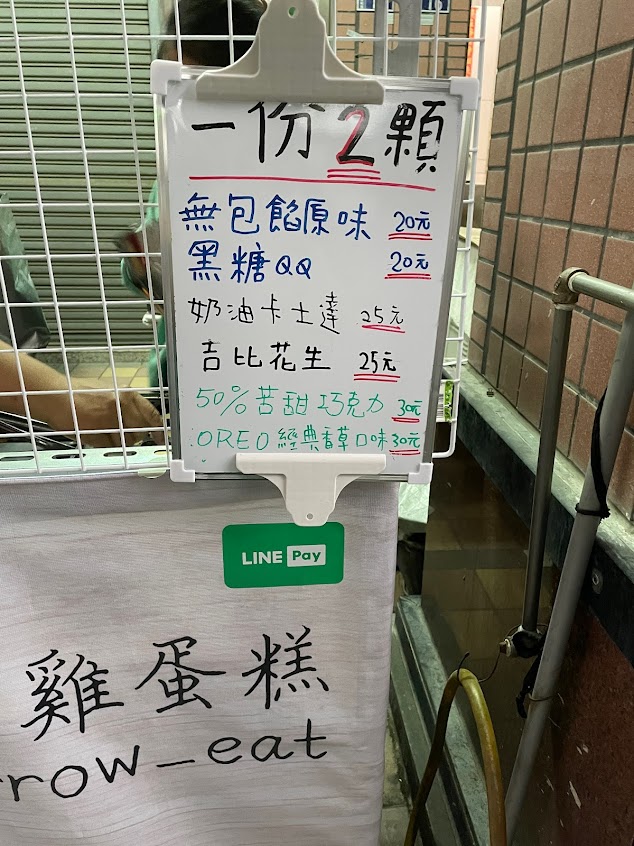 一份2顆
無包餡原味 20元
黑糖QQ 20元
奶油卡士達 25元
吉比花生 25元
50%苦甜巧克力 30元
OREO經典香草口味30元
LINE Pay
雞蛋糕
row_eat